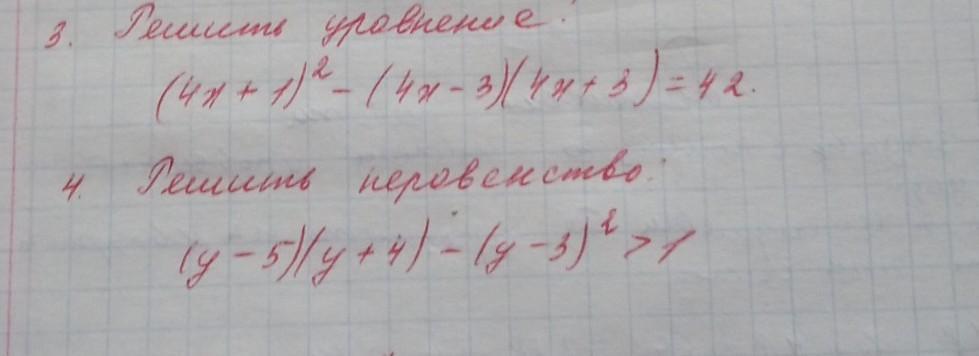 3. Решить уравнение:
(4x + 1)² - (4x - 3)(4x + 3) = 42.
4. Решить неровенство:
(y - 5)(y + 4) - (y - 3)² > 1